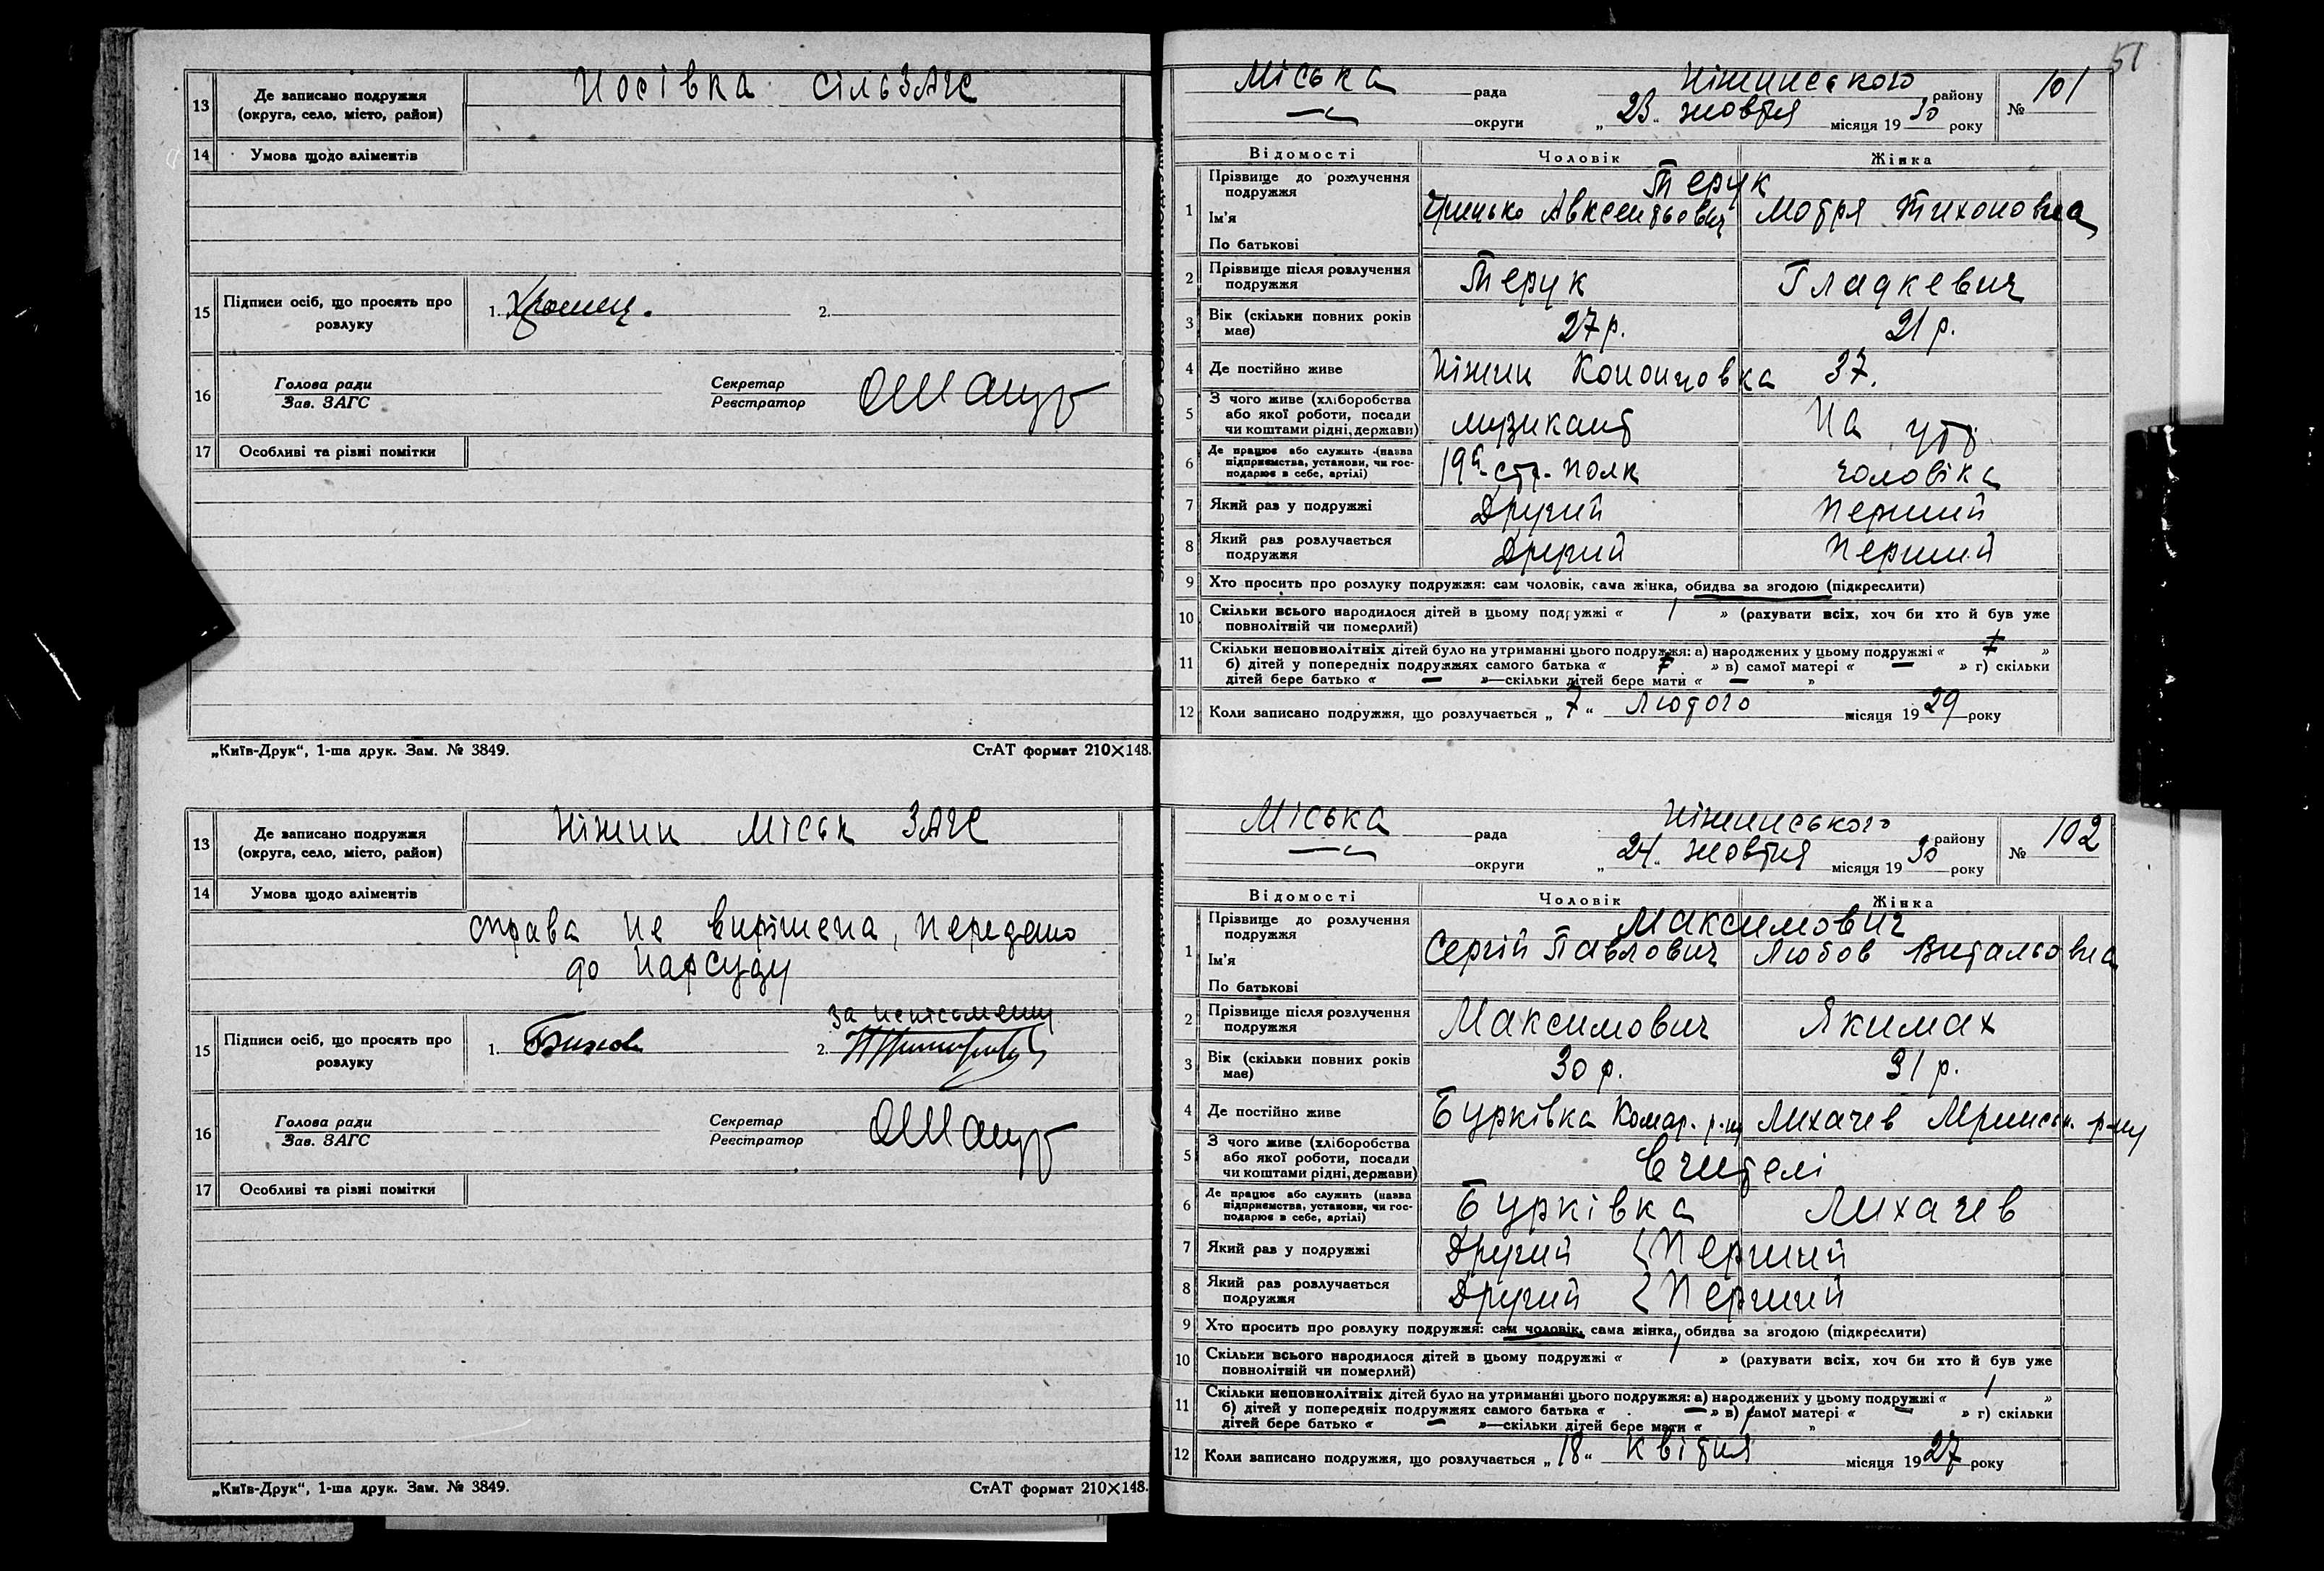 13 Де записано подружжя Носівка сільЗАГС
(округа, село, місто, район)
14 Умова щодо аліментів
15 Підписи осіб, що просять про 1. 2.
розлуку
16 Голова ради Секретар
Зав. ЗАГС Реєстратор
17 Особливі та різні помітки
„Київ-Друк“, 1-ша друк. Зам. № 3849. СтАТ формат 210×148.
13 Де записано подружжя Ніжин міськ ЗАГС
(округа, село, місто, район)
14 Умова щодо аліментів
справа не вирішена, передано
до Нарсуду
за неписьменну
15 Підписи осіб, що просять про 1. 2.
розлуку
16 Голова ради Секретар
Зав. ЗАГС Реєстратор
17 Особливі та різні помітки
„Київ-Друк“, 1-ша друк. Зам. № 3849. СтАТ формат 210×148.
51
Міська рада Ніжинського району № 101
округи „23“ жовтня місяця 1930 року
Відомості Чоловік Жінка
1 Прізвище до розлучення Терук
подружжя
Ім'я Грицько Авксентьович Мотря Тихоновна
По батькові
2 Прізвище після розлучення Терук Гладкевич
подружжя
3 Вік (скільки повних років 27 р. 21 р.
має)
4 Де постійно живе Ніжин Кононовка 37.
5 З чого живе (хліборобства
або якої роботи, посади музикант На утр.
чи коштами рідні, держави)
6 Де працює або служить (назва
підприємства, установи, чи гос- 19й стр. полк чоловіка
подарює в себе, артілі)
7 Який раз у подружжі Другий Перший
8 Який раз розлучається Другий Перший
подружжя
9 Хто просить про розлуку подружжя: сам чоловік, сама жінка, обидва за згодою (підкреслити)
10 Скільки всього народилося дітей в цьому подружжі « 1 » (рахувати всіх, хоч би хто й був уже
повнолітній чи померлий)
11 Скільки неповнолітніх дітей було на утриманні цього подружжя: а) народжених у цьому подружжі « »
б) дітей у попередніх подружжях самого батька « » в) самої матері « — » г) скільки
дітей бере батько « — »—скільки дітей бере мати « — »
12 Коли записано подружжя, що розлучається „7“ Лютого місяця 1929 року
Міська рада Ніжинського району № 102
округи „24“ жовтня місяця 1930 року
Відомості Чоловік Жінка
1 Прізвище до розлучення Максимович
подружжя
Ім'я Сергій Павлович Любов Витальовна
По батькові
2 Прізвище після розлучення Максимович Якимах
подружжя
3 Вік (скільки повних років 30 р. 31 р.
має)
4 Де постійно живе Бурківка Комар. р-ну Лихачев Мринськ. р-ну
5 З чого живе (хліборобства
або якої роботи, посади Вчителі
чи коштами рідні, держави)
6 Де працює або служить (назва
підприємства, установи, чи гос- Бурківка Лихачев
подарює в себе, артілі)
7 Який раз у подружжі Другий Перший
8 Який раз розлучається Другий Перший
подружжя
9 Хто просить про розлуку подружжя: сам чоловік, сама жінка, обидва за згодою (підкреслити)
10 Скільки всього народилося дітей в цьому подружжі « 1 » (рахувати всіх, хоч би хто й був уже
повнолітній чи померлий)
11 Скільки неповнолітніх дітей було на утриманні цього подружжя: а) народжених у цьому подружжі « 1 »
б) дітей у попередніх подружжях самого батька « — » в) самої матері « — » г) скільки
дітей бере батько « — »—скільки дітей бере мати « »
12 Коли записано подружжя, що розлучається „18“ квітня місяця 1927 року